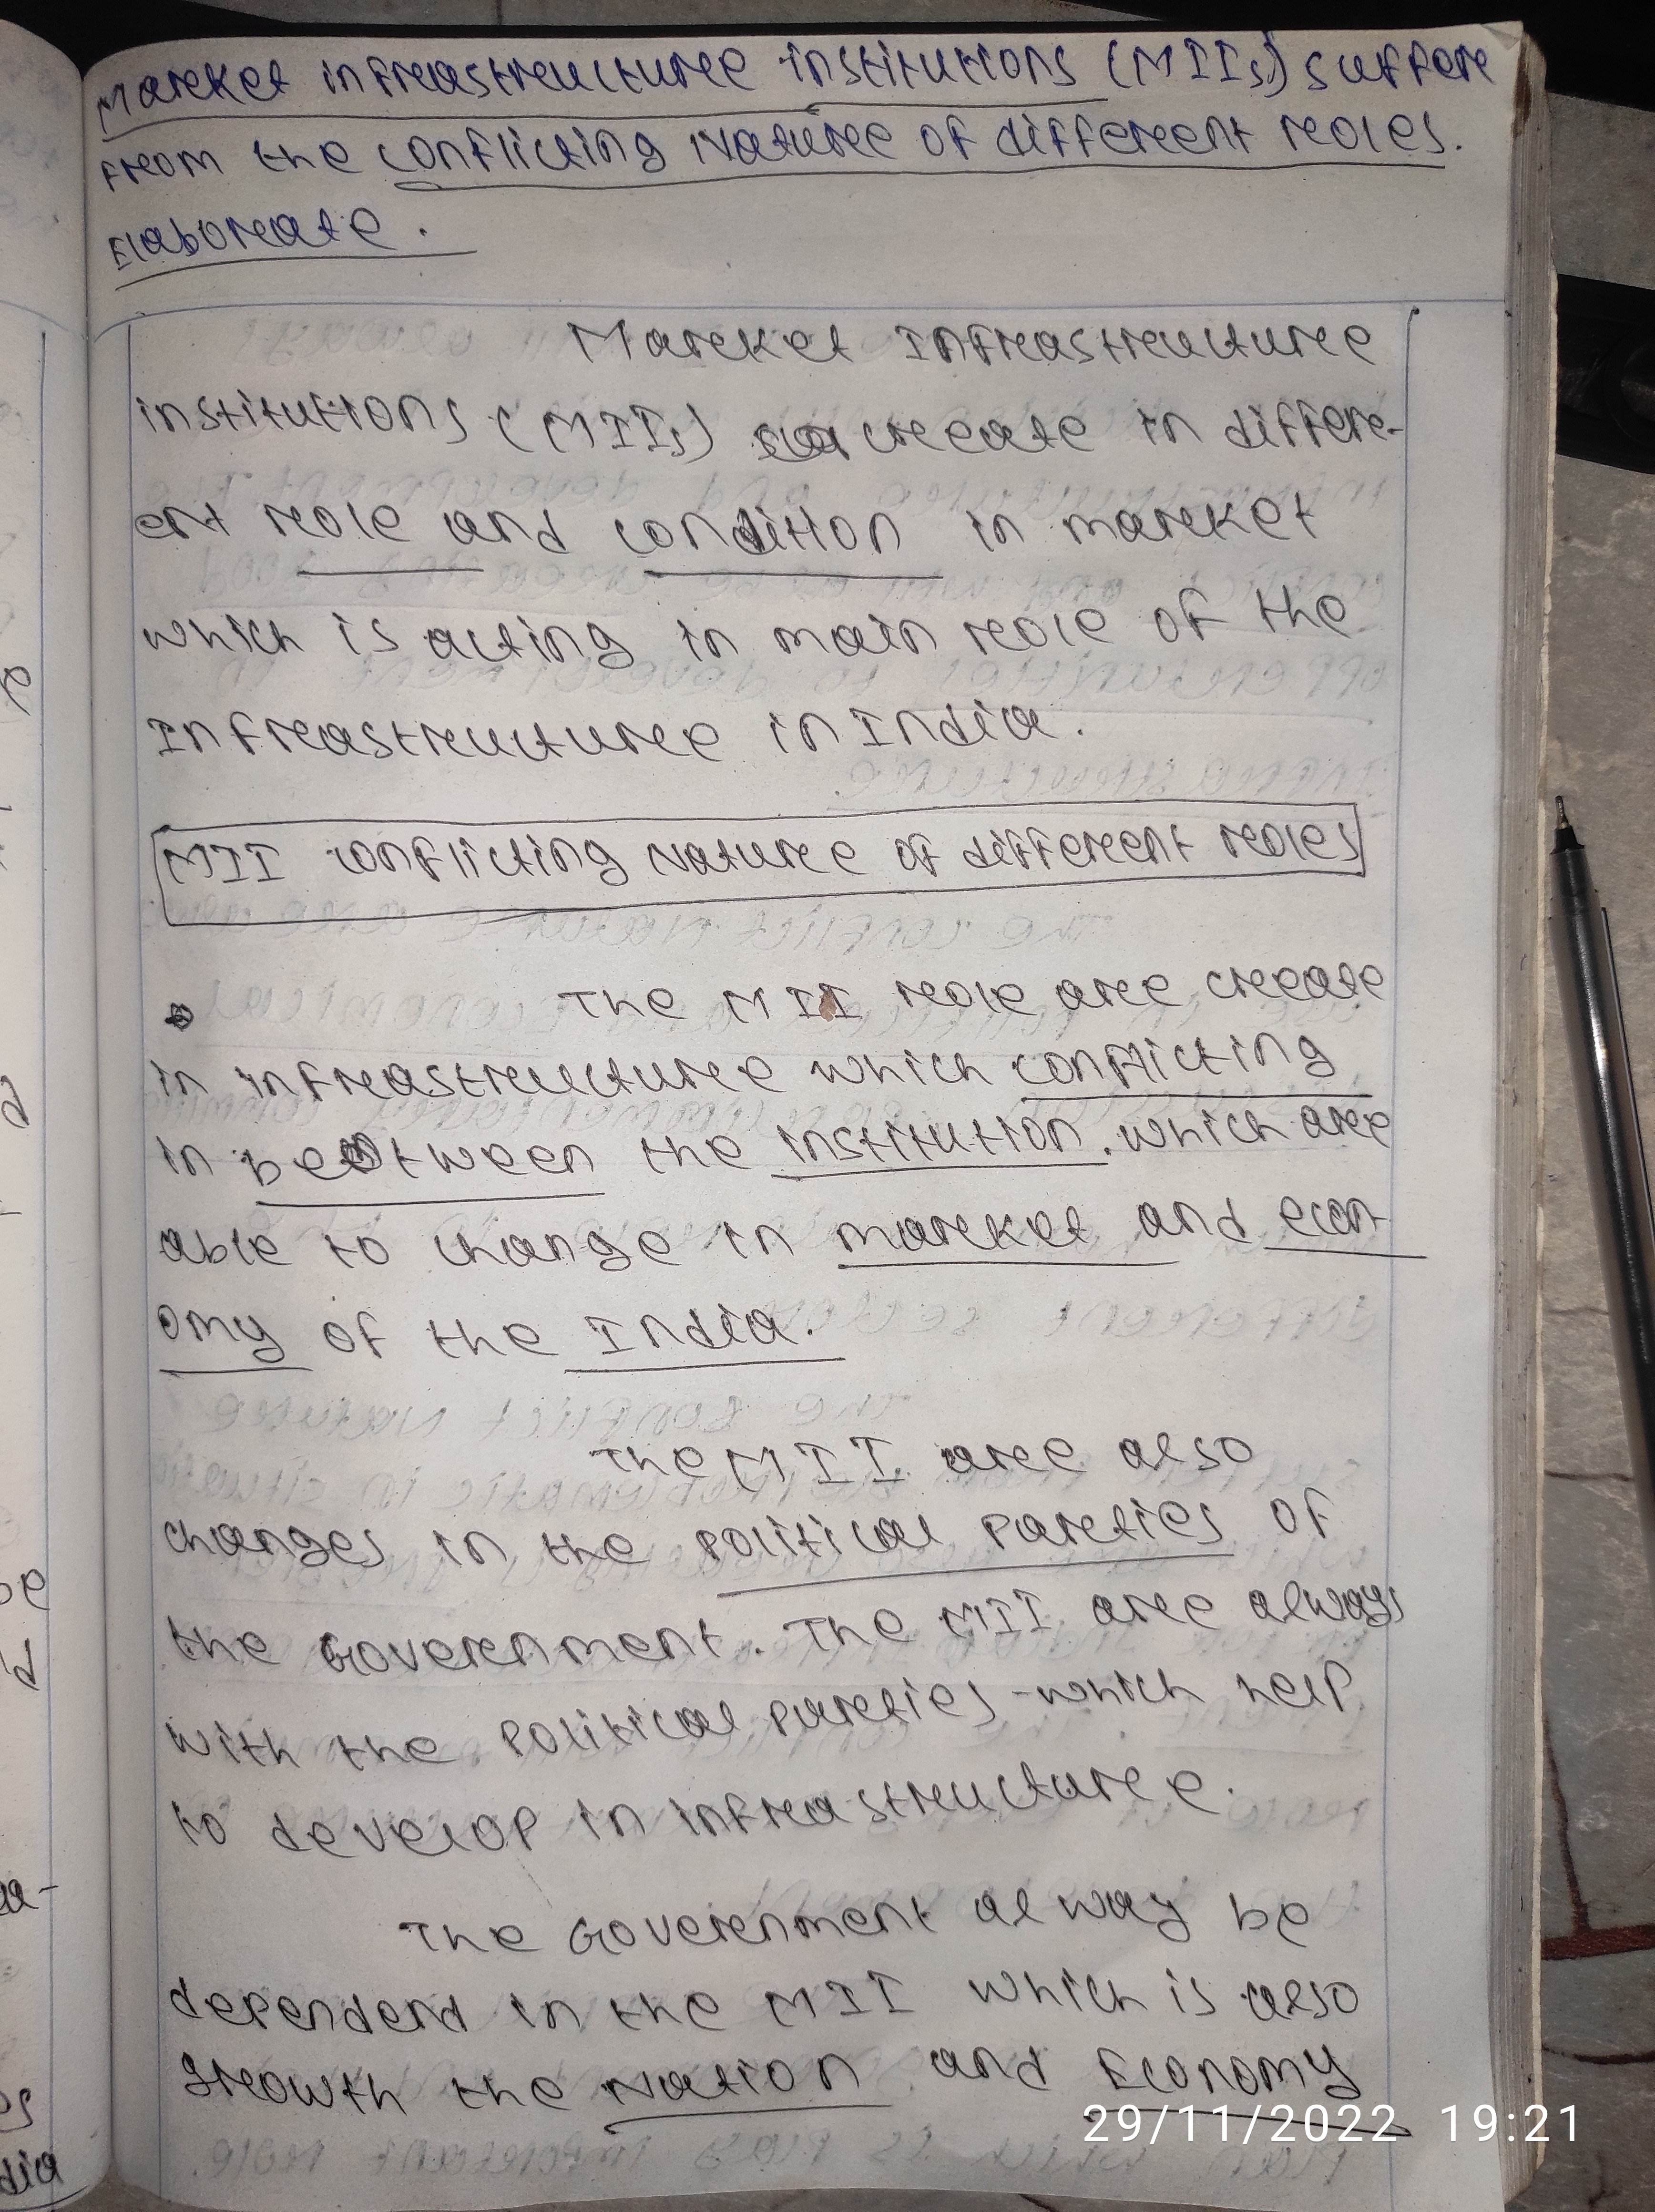 Market infrastructure institutions (MIIs) suffer
from the conflicting Nature of different roles.
Elaborate.
Market Infrastructure
institutions (MIIs) create in differe-
ent role and condition in market
which is acting in main role of the
Infrastructure in India.
MII conflicting Nature of different roles
The MII role are create
in infrastructure which conflicting
in between the institution. which are
able to change in market and econ-
omy of the India.
The MII are also
changes in the political parties of
the Government. The MII are always
with the political parties which help
to develop in infrastructure.
The Government alway be
dependend in the MII which is also
growth the Nation and Economy
29/11/2022 19:21